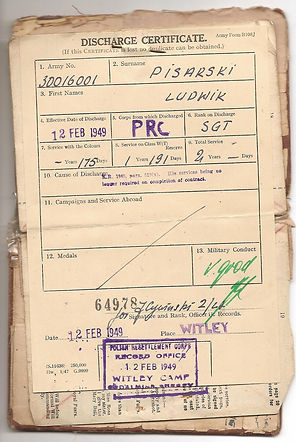 Army Form B108J
DISCHARGE CERTIFICATE.
(If this CERTIFICATE is lost no duplicate can be obtained.)
1. Army No. 2. Surname
30016001 PISARSKI
3. First Names
LUDWIK
4. Effective Date of Discharge 5. Corps from which Discharged 6. Rank on Discharge
12 FEB 1949 PRC SGT
7. Service with the Colours 8. Service on Class W(T) Reserve 9. Total Service
— Years 175 Days 1 Years 191 Days 2 Years — Days
10. Cause of Discharge
K.R. 1940, para. His services being no
longer required on completion of contract.
11. Campaigns and Service Abroad
12. Medals 13. Military Conduct
v. good
64978
for Signature and Rank, Officer i/c Records.
Date 12 FEB 1949 Place WITLEY
POLISH RESETTLEMENT CORPS
RECORD OFFICE
12 FEB 1949
WITLEY CAMP